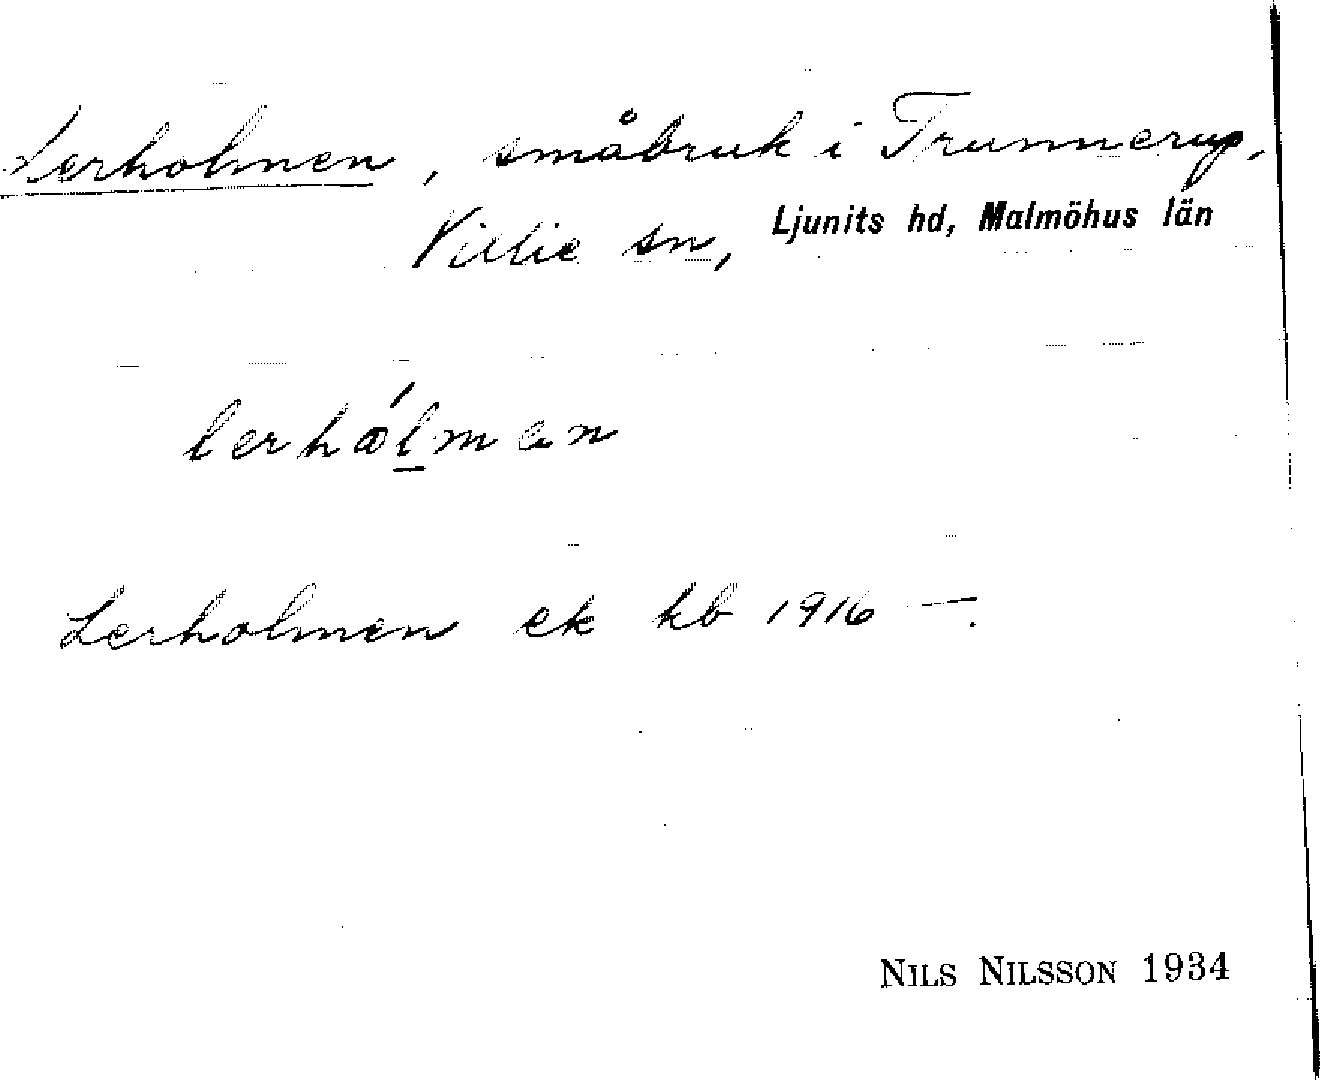 Lerholmen, småbruk i Trunnerup,
Villie sn, Ljunits hd, Malmöhus län
lerhólman
Lerholmen ek kb 1916 —.
NILS NILSSON 1934